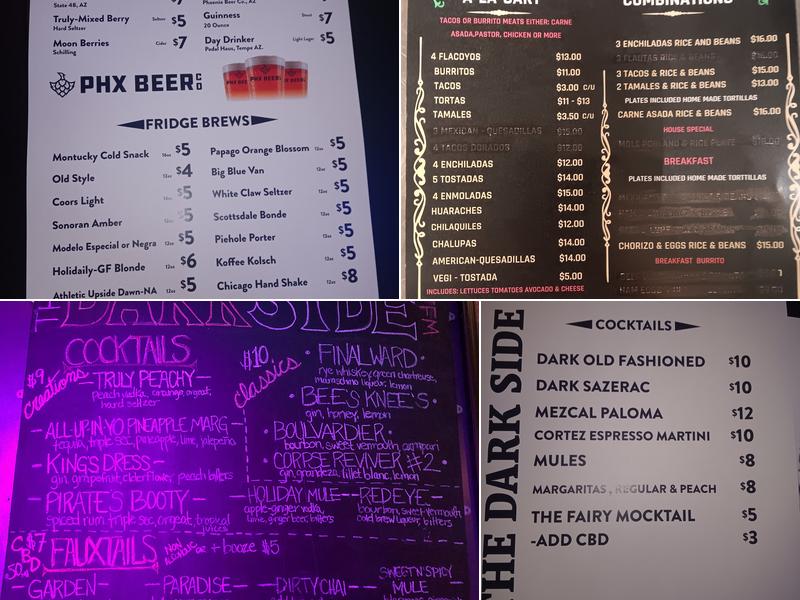 State 48, AZ
Truly-Mixed Berry Seltzer $5
Hard Seltzer
Moon Berries Cider $7
Schilling
Phoenix Beer Co., AZ
Guinness Stout $7
20 Ounce
Day Drinker Light Lager $5
Pedal Haus, Tempe AZ.
PHX BEER CO
FRIDGE BREWS
Montucky Cold Snack 16oz $5
Old Style $4
Coors Light $5
Sonoran Amber $5
Modelo Especial or Negra 12oz $5
Holidaily-GF Blonde 12oz $6
Athletic Upside Dawn-NA 12oz $5
Papago Orange Blossom 12oz $5
Big Blue Van 12oz $5
White Claw Seltzer 12oz $5
Scottsdale Bonde 12oz $5
Piehole Porter 12oz $5
Koffee Kolsch 12oz $5
Chicago Hand Shake 12oz $8
A LA CART
TACOS OR BURRITO MEATS EITHER: CARNE
ASADA,PASTOR, CHICKEN OR MORE
4 FLACOYOS $13.00
BURRITOS $11.00
TACOS $3.00 C/U
TORTAS $11 - $13
TAMALES $3.50 C/U
3 MEXICAN - QUESADILLAS $15.00
4 TACOS DORADOS $12.00
4 ENCHILADAS $12.00
5 TOSTADAS $14.00
4 ENMOLADAS $15.00
HUARACHES $14.00
CHILAQUILES $12.00
CHALUPAS $14.00
AMERICAN-QUESADILLAS $14.00
VEGI - TOSTADA $5.00
INCLUDES: LETTUCES TOMATOES AVOCADO & CHEESE
COMBINATIONS
3 ENCHILADAS RICE AND BEANS $16.00
3 FLAUTAS RICE & BEANS
3 TACOS & RICE & BEANS $15.00
2 TAMALES & RICE & BEANS $13.00
PLATES INCLUDED HOME MADE TORTILLAS
CARNE ASADA RICE & BEANS $16.00
HOUSE SPECIAL
MOLE POBLANO & RICE PLATE
BREAKFAST
PLATES INCLUDED HOME MADE TORTTILLAS
CHORIZO & EGGS RICE & BEANS $15.00
BREAKFAST BURRITO
DARKSIDE
FM
COCKTAILS
$9 Creations
-TRULY PEACHY-
Peach vodka, orange, orgeat,
hard seltzer
-ALL UP IN YO PINEAPPLE MARG-
tequila, triple sec, pineapple, lime, jalepeño
-KINGS DRESS-
gin, grapefruit, elderflower, peach bitters
-PIRATE'S BOOTY-
spiced rum, triple sec, orgeat, tropical
juices
$10 classics
• FINAL WARD •
rye whiskey, green chartreuse,
maraschino liqueur, lemon
• BEE'S KNEE'S •
gin, honey, lemon
• BOULVARDIER •
bourbon, sweet vermouth, campari
• CORPSE REVIVER #2 •
gin, grandeza, lillet blanc, lemon
-HOLIDAY MULE-
apple-ginger vodka,
lime, ginger beer, bitters
-REDEYE-
bourbon, sweet vermouth,
cold brew liqueur, bitters
CBD $7
50m
FAUXTAILS
NON ALCOHOLIC
+ booze $5
-GARDEN-
-PARADISE-
-DIRTY CHAI-
SWEET N' SPICY
MULE
THE DARK SIDE
COCKTAILS
DARK OLD FASHIONED $10
DARK SAZERAC $10
MEZCAL PALOMA $12
CORTEZ ESPRESSO MARTINI $10
MULES $8
MARGARITAS , REGULAR & PEACH $8
THE FAIRY MOCKTAIL $5
-ADD CBD $3